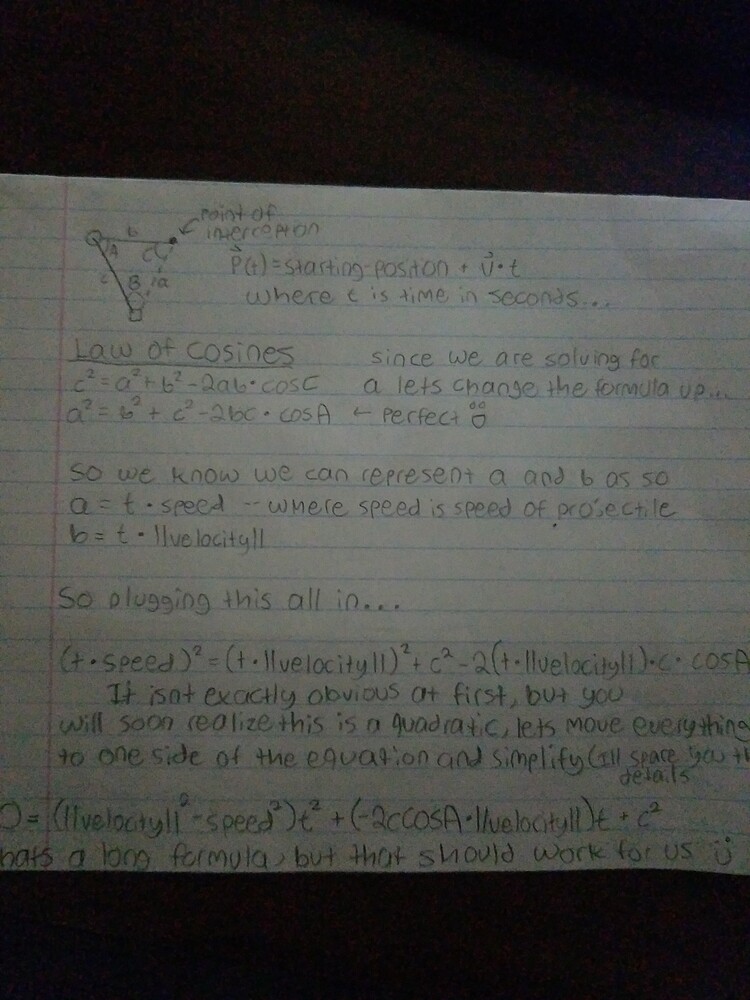 point of
b interception
A C
c B a
P(t)=starting-positon + v·t
where t is time in seconds...
Law of cosines since we are solving for
c²=a²+b²-2ab·cosC a lets change the formula up...
a²=b²+c²-2bc·cosA ← perfect
so we know we can represent a and b as so
a = t·speed -- where speed is speed of projectile
b = t·||velocity||
So plugging this all in...
(t·speed)²=(t·||velocity||)²+c²-2(t·||velocity||)·c·cosA
It isnt exactly obvious at first, but you
will soon realize this is a quadratic, lets move everything
to one side of the equation and simplify (Ill spare you th
details
0=(||velocity||²-speed²)t²+(-2ccosA·||velocity||)t+c²
hats a long formula, but that should work for us ü